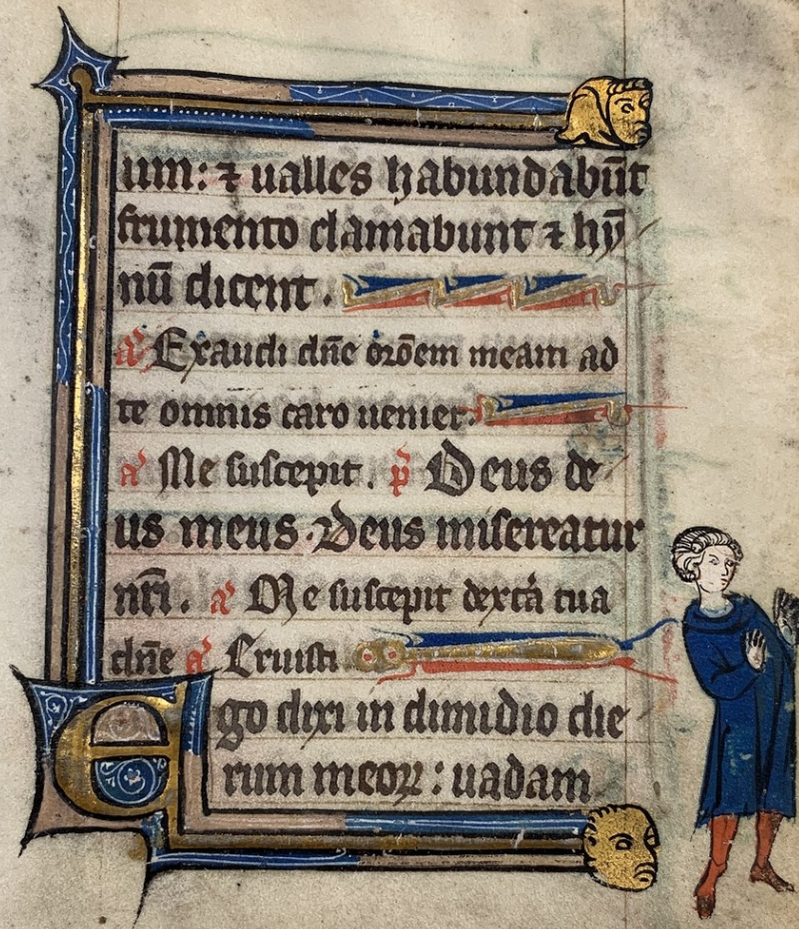 um: ⁊ ualles habundabūt
frumento clamabunt ⁊ hy̅
nū dicent.
a᷑ Exaudi dn̅e or̅oem meam ad
te omnis caro ueniet.
a᷑ Me suscepit. p̅ Deus de
us meus. Deus misereatur
nr̅i. a᷑ Me suscepit dext͛a tua
dn̅e a᷑ Eruisti
Ego dixi in dimidio die
rum meoꝝ: uadam